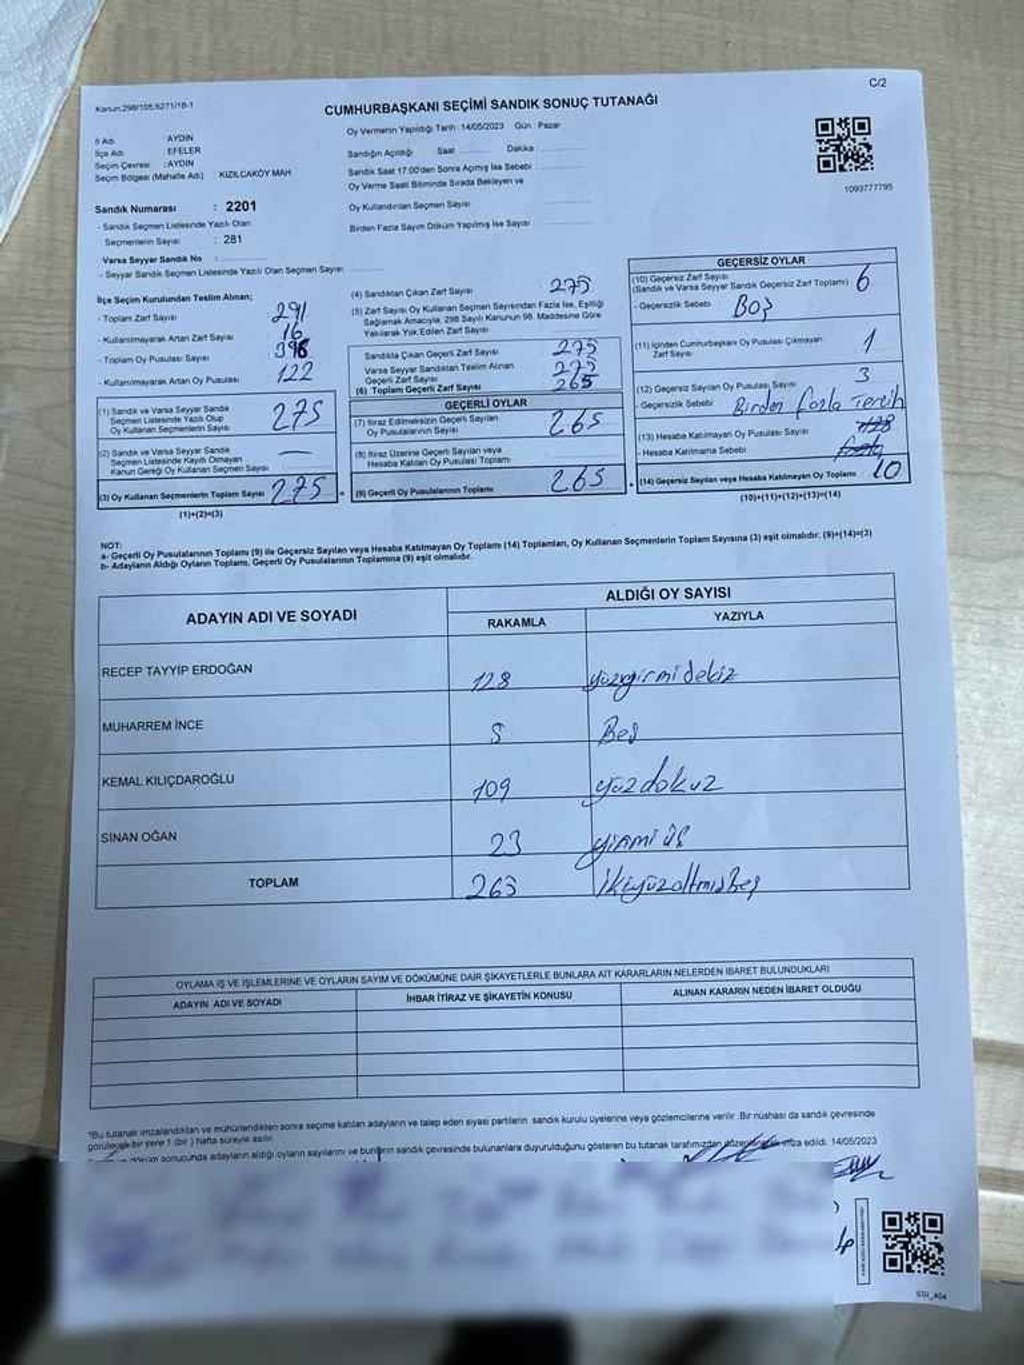 Kanun:298/105,6271/18-1
C/2
CUMHURBAŞKANI SEÇİMİ SANDIK SONUÇ TUTANAĞI
İl Adı AYDIN
İlçe Adı EFELER
Seçim Çevresi :AYDIN
Seçim Bölgesi (Mahalle Adı) KIZILCAKÖY MAH
Sandık Numarası : 2201
- Sandık Seçmen Listesinde Yazılı Olan
Seçmenlerin Sayısı : 281
Varsa Seyyar Sandık No :
- Seyyar Sandık Seçmen Listesinde Yazılı Olan Seçmen Sayısı
Oy Vermenin Yapıldığı Tarih : 14/05/2023 Gün : Pazar
Sandığın Açıldığı Saat Dakika
Sandık Saat 17:00'den Sonra Açılmış İse Sebebi
Oy Verme Saati Bitiminde Sırada Bekleyen ve
Oy Kullandırılan Seçmen Sayısı
Birden Fazla Sayım Döküm Yapılmış İse Sayısı
1093777795
İlçe Seçim Kurulundan Teslim Alınan;
- Toplam Zarf Sayısı 291
- Kullanılmayarak Artan Zarf Sayısı 16
- Toplam Oy Pusulası Sayısı
- Kullanılmayarak Artan Oy Pusulası 122
(1) Sandık ve Varsa Seyyar Sandık
Seçmen Listesinde Yazılı Olup
Oy Kullanan Seçmenlerin Sayısı 275
(2) Sandık ve Varsa Seyyar Sandık
Seçmen Listesinde Kayıtlı Olmayan
Kanun Gereği Oy Kullanan Seçmen Sayısı —
(3) Oy Kullanan Seçmenlerin Toplam Sayısı 275
(1)+(2)=(3)
(4) Sandıktan Çıkan Zarf Sayısı 275
(5) Zarf Sayısı Oy Kullanan Seçmen Sayısından Fazla İse, Eşitliği
Sağlamak Amacıyla, 298 Sayılı Kanunun 98. Maddesine Göre
Yakılarak Yok Edilen Zarf Sayısı
Sandıkta Çıkan Geçerli Zarf Sayısı 275
Varsa Seyyar Sandıktan Teslim Alınan
Geçerli Zarf Sayısı 275
(6) Toplam Geçerli Zarf Sayısı 265
GEÇERLİ OYLAR
(7) İtiraz Edilmeksizin Geçerli Sayılan
Oy Pusulalarının Sayısı 265
(8) İtiraz Üzerine Geçerli Sayılan veya
Hesaba Katılan Oy Pusulası Toplamı
(9) Geçerli Oy Pusulalarının Toplamı 265
GEÇERSİZ OYLAR
(10) Geçersiz Zarf Sayısı
(Sandık ve Varsa Seyyar Sandık Geçersiz Zarf Toplamı) 6
- Geçersizlik Sebebi Boş
(11) İçinden Cumhurbaşkanı Oy Pusulası Çıkmayan
Zarf Sayısı 1
(12) Geçersiz Sayılan Oy Pusulası Sayısı 3
- Geçersizlik Sebebi Birden fazla Tercih
(13) Hesaba Katılmayan Oy Pusulası Sayısı
- Hesaba Katılmama Sebebi
(14) Geçersiz Sayılan veya Hesaba Katılmayan Oy Toplamı 10
(10)+(11)+(12)+(13)=(14)
NOT:
a- Geçerli Oy Pusulalarının Toplamı (9) ile Geçersiz Sayılan veya Hesaba Katılmayan Oy Toplamı (14) Toplamları, Oy Kullanan Seçmenlerin Toplam Sayısına (3) eşit olmalıdır. (9)+(14)=(3)
b- Adayların Aldığı Oyların Toplamı, Geçerli Oy Pusulalarının Toplamına (9) eşit olmalıdır.
ADAYIN ADI VE SOYADI
ALDIĞI OY SAYISI
RAKAMLA YAZIYLA
RECEP TAYYİP ERDOĞAN 128 yüzyirmi Sekiz
MUHARREM İNCE 5 Beş
KEMAL KILIÇDAROĞLU 109 yüzdokuz
SİNAN OĞAN 23 yirmi üç
TOPLAM 265 ikiyüzaltmışbeş
OYLAMA İŞ VE İŞLEMLERİNE VE OYLARIN SAYIM VE DÖKÜMÜNE DAİR ŞİKAYETLERLE BUNLARA AİT KARARLARIN NELERDEN İBARET BULUNDUKLARI
ADAYIN ADI VE SOYADI İHBAR İTİRAZ VE ŞİKAYETİN KONUSU ALINAN KARARIN NEDEN İBARET OLDUĞU
*Bu tutanak imzalandıktan ve mühürlendikten sonra seçime katılan adayların ve talep eden siyasi partilerin sandık kurulu üyelerine veya gözlemcilerine verilir. Bir nüshası da sandık çevresinde
görülecek bir yere 1 (bir ) hafta süreyle asılır.
döküm sonucunda adayların aldığı oyların sayılarını ve bunların sandık çevresinde bulunanlara duyurulduğunu gösteren bu tutanak tarafımızdan düzenlenerek imza edildi. 14/05/2023